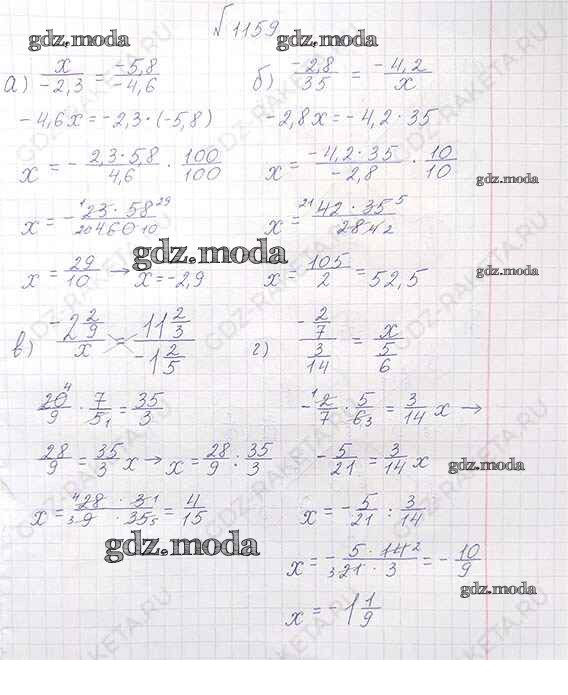 √1159
gdz.moda gdz.moda
а) x/-2,3 = -5,8/-4,6
-4,6x = -2,3·(-5,8)
x = - 2,3·5,8/4,6 · 100/100
x = - 23·58/460
gdz.moda
x = 29/10 → x = -2,9
б) -2,8/35 = -4,2/x
-2,8x = -4,2·35
x = -4,2·35/-2,8 · 10/10
gdz.moda
x = 42·35/28
x = 105/2 = 52,5
gdz.moda
в) -2 2/9 / x = 11 2/3 / -1 2/5
20/9 · 7/5 = 35/3
28/9 = 35/3 x → x = 28/9 : 35/3
x = 28·3/9·35 = 4/15
gdz.moda
г) -2/7 / 3/14 = x / 5/6
-2/7 · 5/6 = 3/14 x →
-5/21 = 3/14 x
gdz.moda
x = -5/21 : 3/14
x = - 5·14/21·3 = - 10/9
gdz.moda
x = -1 1/9
GDZ-RAKETA.RU